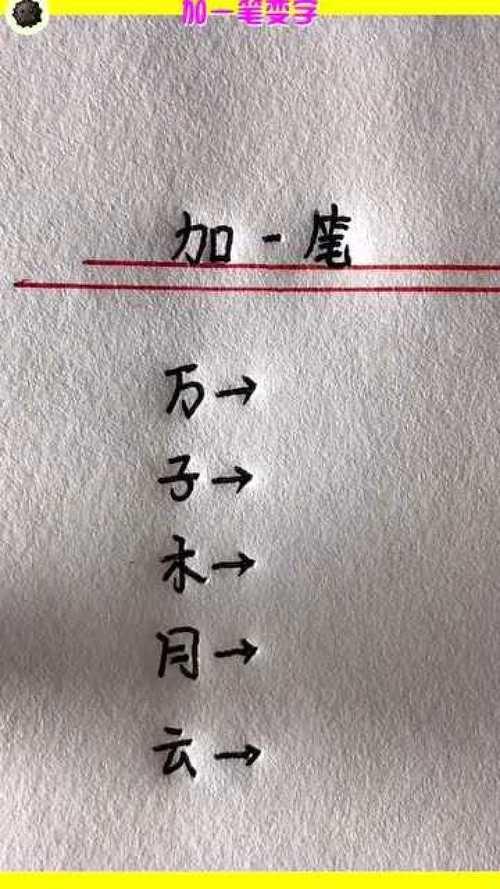 加一笔变字
加一笔
万→
子→
木→
月→
云→